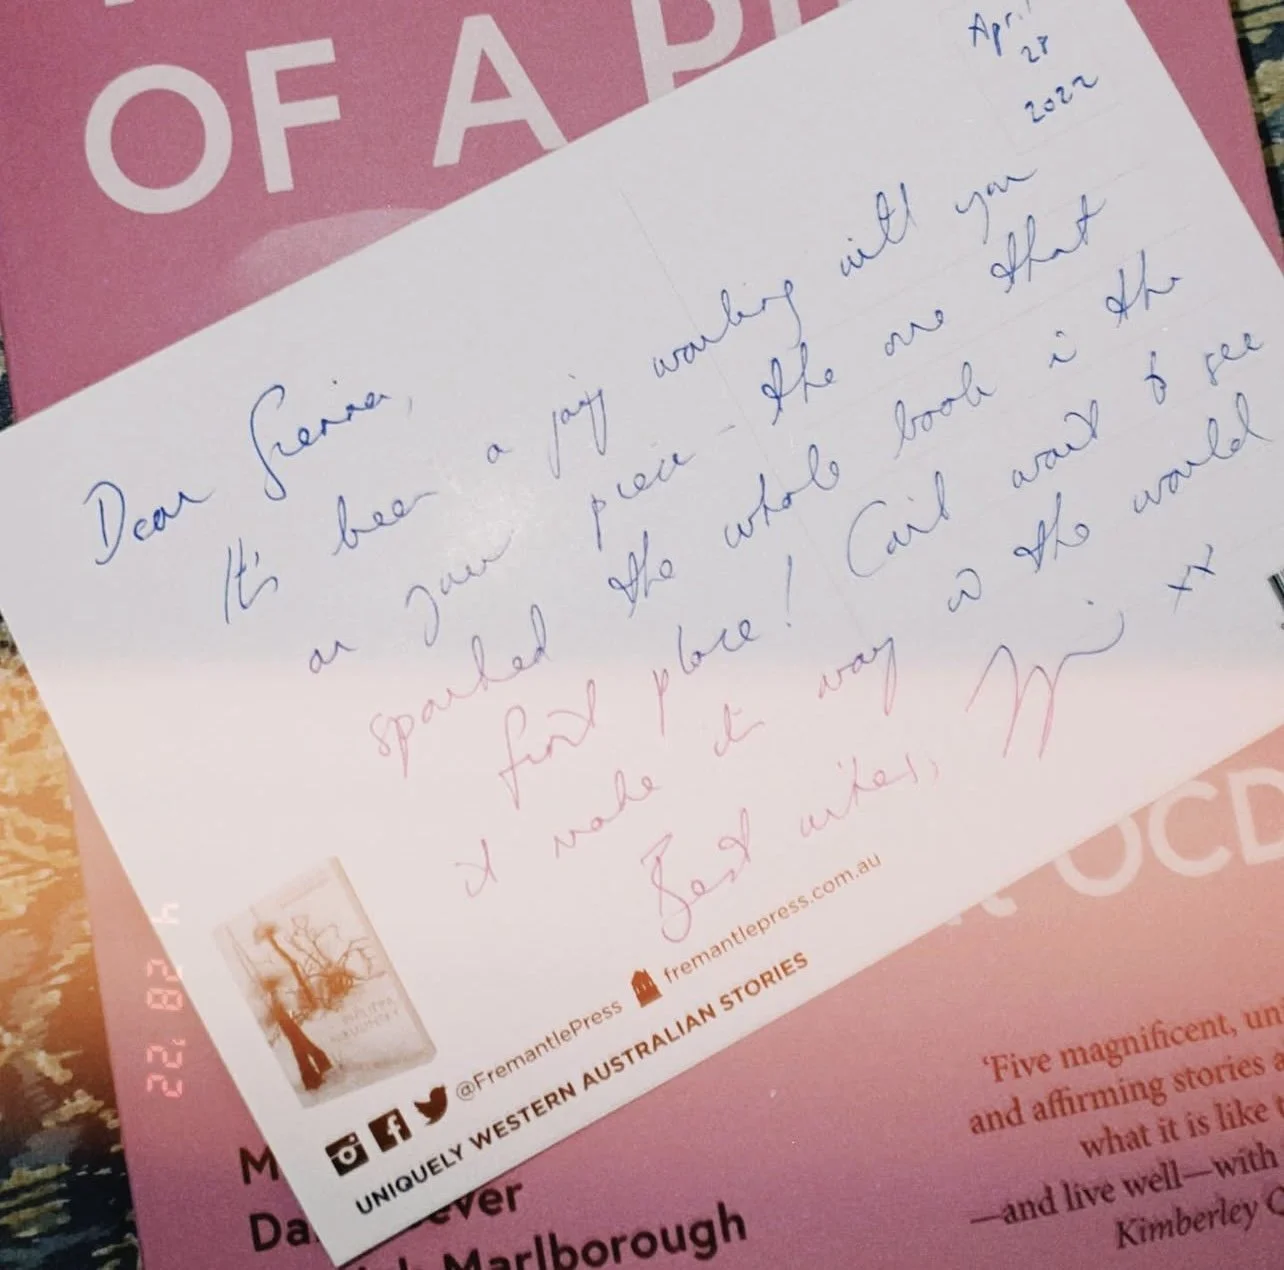 OF A
April
28
2022
Dear Sienna,
It's been a joy working with you
on your piece - the one that
sparked the whole book in the
first place! Can't wait to see
it make its way in the world
Best wishes,
xx
@FremantlePress fremantlepress.com.au
UNIQUELY WESTERN AUSTRALIAN STORIES
4 28 '22
OCD
'Five magnificent, un
and affirming stories a
what it is like
—and live well—with
Kimberley
Marlborough